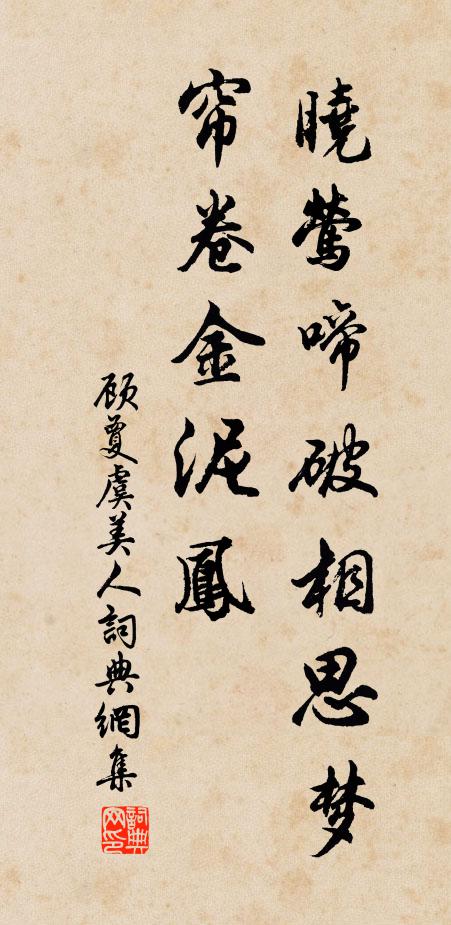 曉莺啼破相思梦
帘卷金泥鳳
顾夐虞美人詞典網集
詞典网印